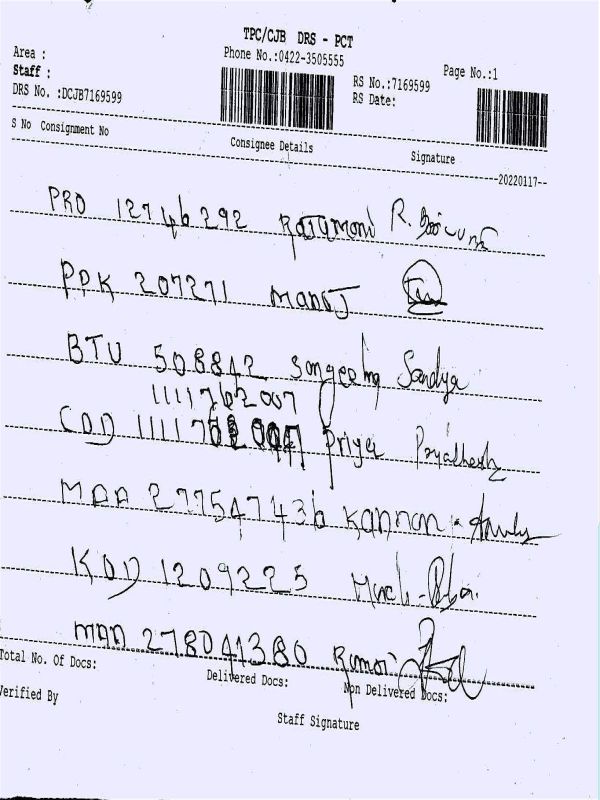 TPC/CJB DRS - PCT
Area :
Phone No.:0422-3505555
Page No.:1
Staff :
RS No.:7169599
DRS No. :DCJB7169599
RS Date:
S No Consignment No Consignee Details Signature
20220117
PRO 12746292 R.
PDK 207271 Manoj
BTU 508842 Sangeetha Sandya
1111762007
COD 1111 Priya
MAA 277547436 Kannan
KOD 1209225
MAA 278041380 Kumar
Total No. Of Docs:
Delivered Docs:
Non Delivered Docs:
Verified By
Staff Signature